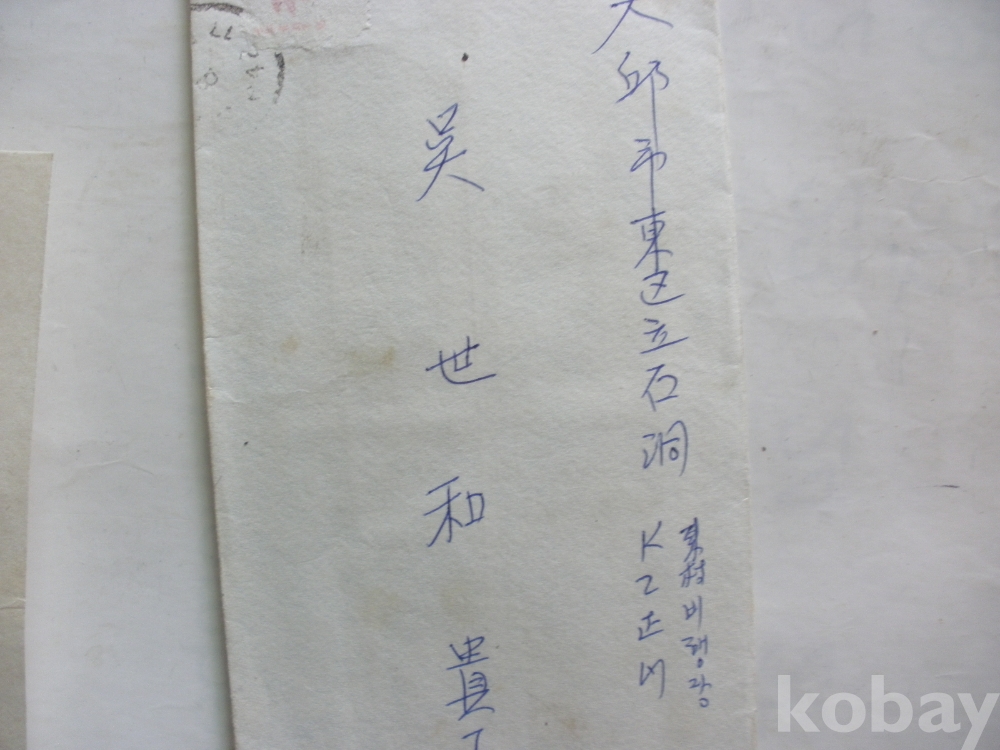 大邱市東区立石洞
東村비행장
K2正門
吳世和貴下
kobay